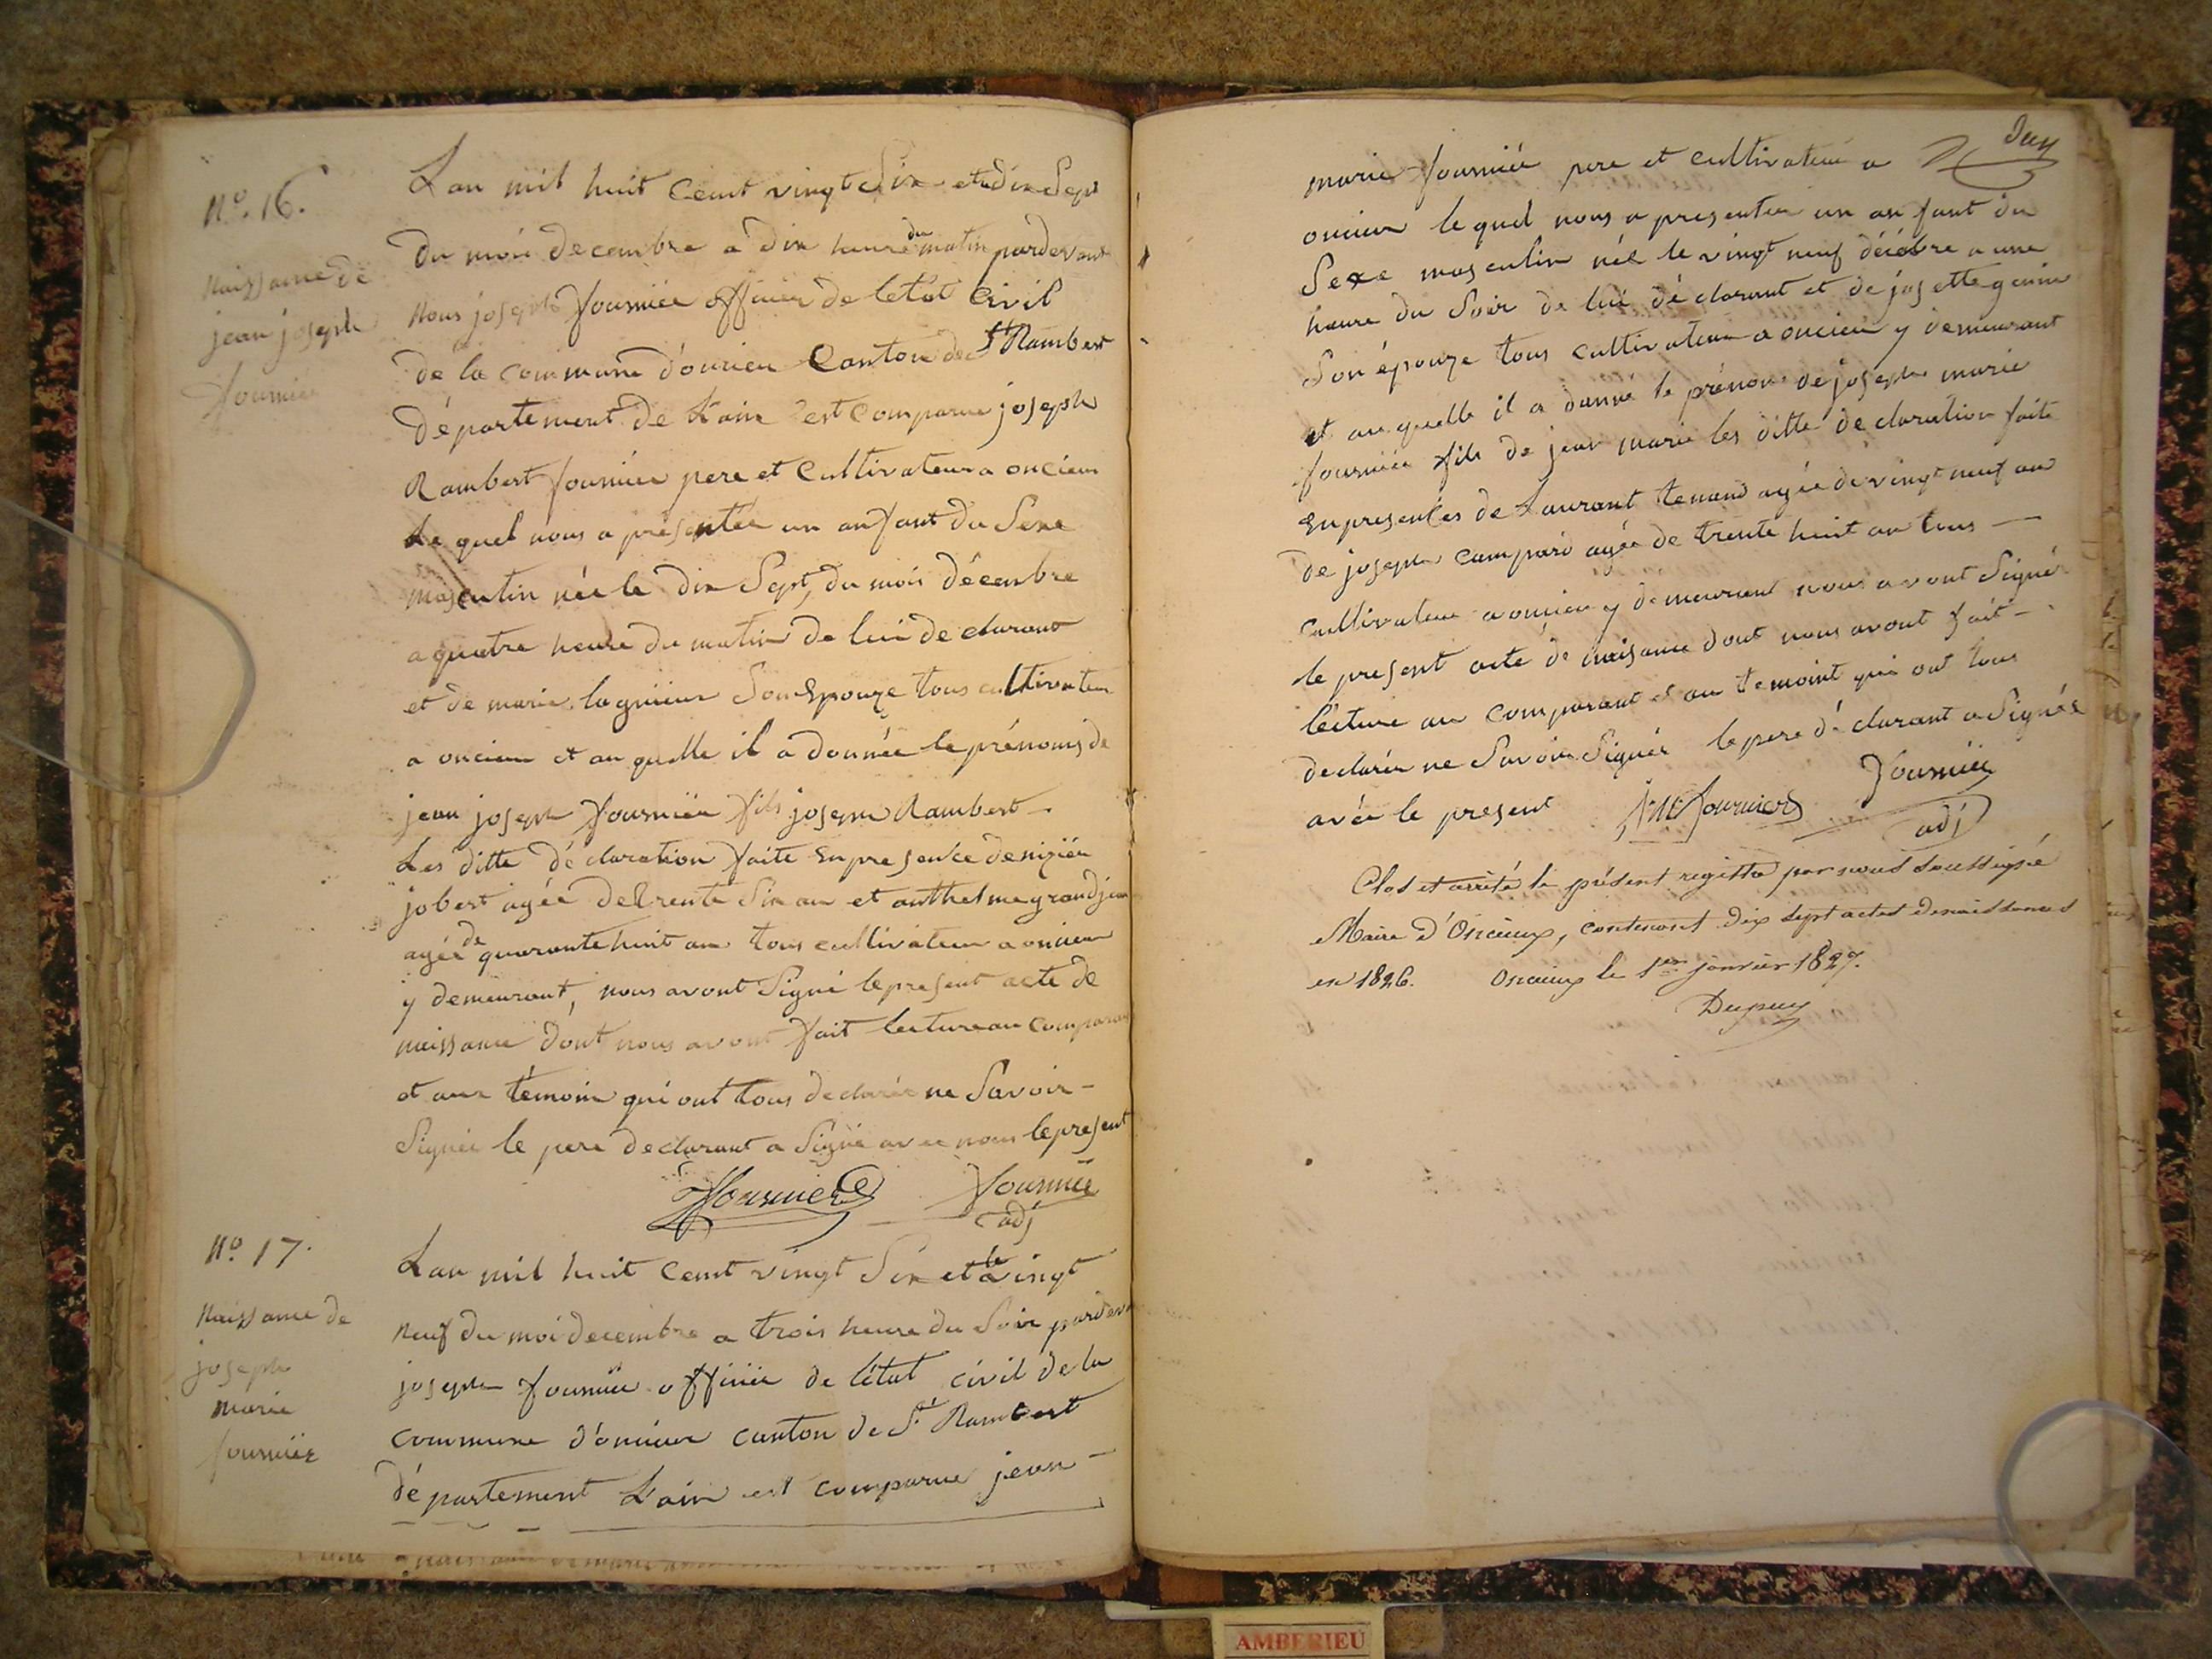 N°. 16.
Naissance de
jean joseph
fournier
Lan mil huit Cent vingt Six et dix Sept
du mois decembre a dix heure du matin pardevant
Nous joseph fourniée officier de letat Civil
de la commune d'oncieu Canton de St Rambert
département de L'ain est comparue joseph
Rambert fourniée pere et Cultivateur a oncieu
Le quel nous a présentée un anfant du Sexe
masculin née le dix Sept, du mois décembre
a quatre heure du matin de lui declarant
et de marie Son Epouze tous cultivateur
a oncieu et au quelle il a donnée le prénoms de
jean joseph fourniée fils joseph Rambert
Les ditte déclaration faite En presence de
jobert agée de trente Six an et anthelme grandjean
agée de quarante huit an tous cultivateur a oncieu
y demeurant, nous avont Signé le present acte de
naissance dont nous avont fait lecture au comparant
et aux témoin qui ont tous declarée ne Savoir -
Signée le pere declarant a Signé avec nous le present
Fournier fourniée
adj
N° 17.
Naissance de
joseph
marie
fourniée
Lan mil huit Cent vingt Six et le vingt
neuf du moi decembre a trois heure du Soir pardevant
joseph fourniée officiée de létat civil de la
commune d'oncieu canton de St Rambert
département L'ain est comparue jean -
marie fourniée pere et cultivateur a
oncieu lequel nous a presentée un anfant du
Sexe masculin née le vingt neuf décébre a une
heure du Soir de lui déclarant et de josette
Son épouze tous cultivateur a oncieu y demeurant
et au quelle il a donné le prénom de joseph marie
fourniée fils de jean marie les ditte declaration faite
En presentes de Laurant tenand agée de vingt neuf an
de joseph agée de trente huit an tous -
cultivateur a oncieu y demeurant nous avont Signée
le present acte de naisance dont nous avont fait -
lécture au comparant et au temoint qui ont tous
declarée ne Savoir Signée le pere déclarant a Signée
avéc le present JM fournier fourniée
adj
Clos et arrêté le présent registre par nous soussigné
Maire d'Oncieux, contenant dix sept actes de naissances
en 1826. Oncieux le 1er janvier 1827.
Dupuy
AMBERIEU